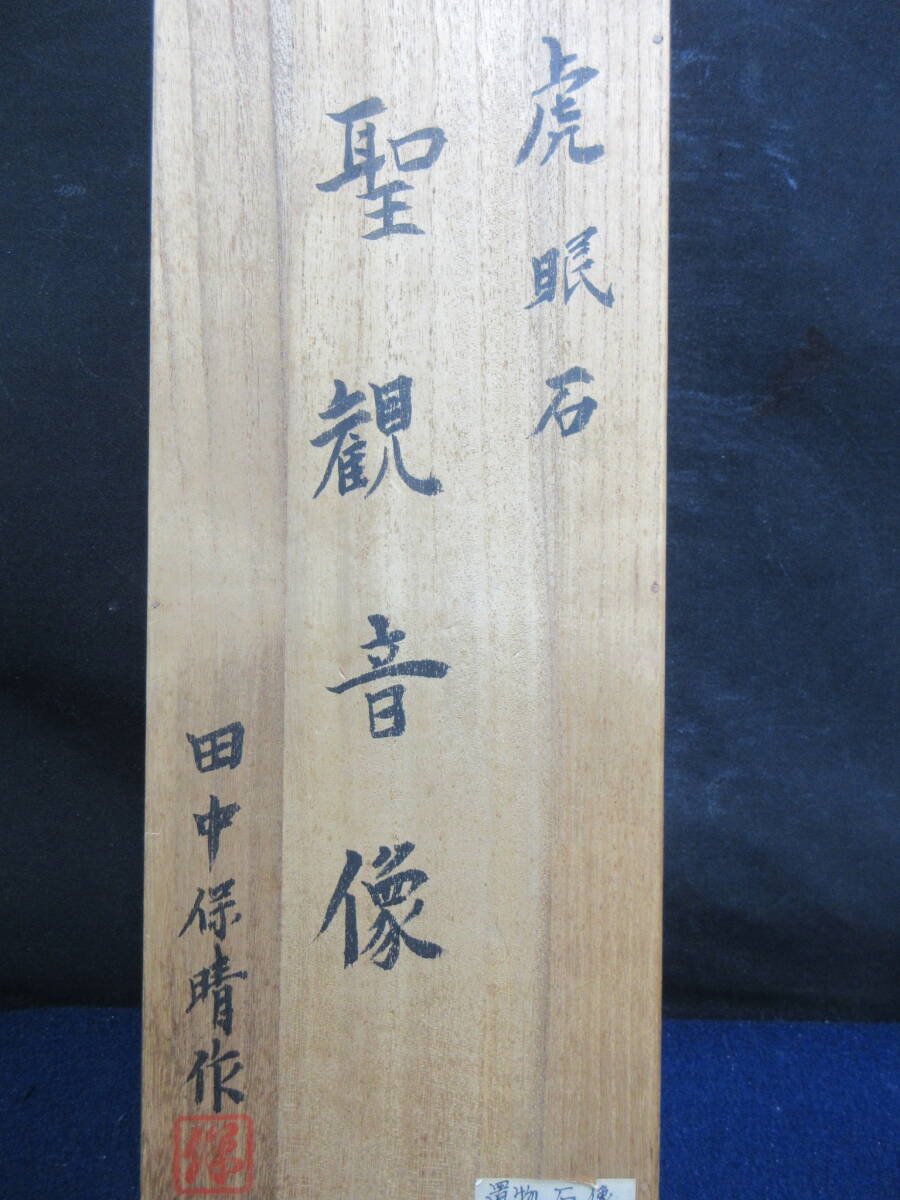 虎眼石
聖観音像
田中保晴作
保
置物 石像